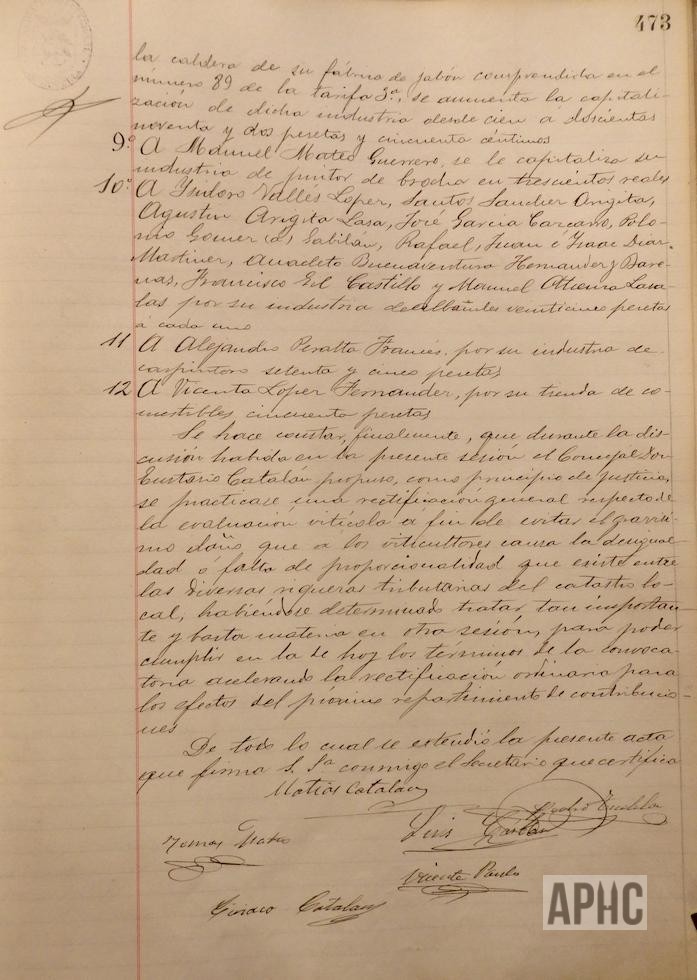 473
la caldera de su fábrica de jabón comprendida en el
número 89 de la tarifa 3ª, se aumenta la capitali-
zación de dicha industria desde cien a doscientas
noventa y dos pesetas y cincuenta céntimos
9º A Manuel Mateo Guerrero, se le capitaliza su
industria de pintor de brocha en trescientos reales
10º A Ysidoro Vallés Lopez, Santos Sanchez Angita,
Agustin Angita Lasa, José Garcia Carcavo, Polo-
nio Gomez Gabilán, Rafael, Juan é Ysaac Diaz
Martinez, Anacleto Buenaventura Hernandez y Bare-
nas, Francisco Gil Castillo y Manuel Atienza Lasa-
las por su industria de albañiles veinticinco pesetas
á cada uno
11 A Alejandro Peralta Francés, por su industria de
carpintero setenta y cinco pesetas
12 A Vicenta Lopez Fernandez, por su tienda de co-
mestibles cincuenta pesetas
Se hace constar, finalmente, que durante la dis-
cusión habida en la presente sesión el Concejal Don
Eustasio Catalán propuso, como principio de justicia,
se practicase una rectificación general respecto de
la evaluación vitícola á fin de evitar el gravísi-
mo daño que a los viticultores causa la desigual
dad ó falta de proporcionalidad que existe entre
las diversas riquezas tributarias del catastro lo-
cal, habiéndose determinado tratar tan importan-
te y basta materia en otra sesión, para poder
cumplir en la de hoy los terminos de la convoca-
toria acelerando la rectificación ordinaria para
los efectos del próximo repartimiento de contribucio-
nes
De todo lo cual se extendió la presente acta
que firma S. Sª conmigo el Secretario que certifica
Matias Catalan
Luis Catalan
Tomas Mateo
Vicente Pardo
Ciriaco Catalan
APHC